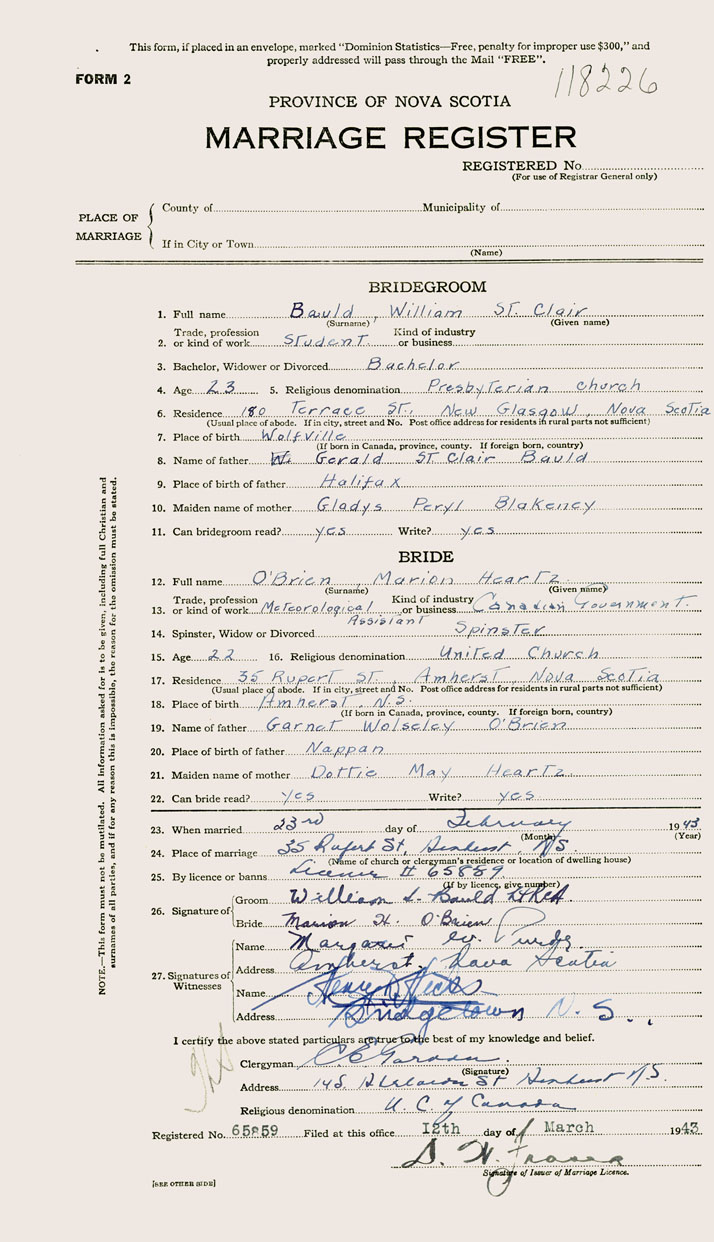 This form, if placed in an envelope, marked "Dominion Statistics—Free, penalty for improper use $300," and
properly addressed will pass through the Mail "FREE".
FORM 2
118226
PROVINCE OF NOVA SCOTIA
MARRIAGE REGISTER
REGISTERED No.
(For use of Registrar General only)
PLACE OF MARRIAGE
County of Municipality of
If in City or Town
(Name)
BRIDEGROOM
1. Full name Bauld, William St. Clair
(Surname) (Given name)
2. Trade, profession or kind of work Student Kind of industry or business
3. Bachelor, Widower or Divorced Bachelor
4. Age 23 5. Religious denomination Presbyterian Church
6. Residence 180 Terrace St., New Glasgow, Nova Scotia
(Usual place of abode. If in city, street and No. Post office address for residents in rural parts not sufficient)
7. Place of birth Wolfville
(If born in Canada, province, county. If foreign born, country)
8. Name of father W. Gerald St Clair Bauld
9. Place of birth of father Halifax
10. Maiden name of mother Gladys Peryl Blakeney
11. Can bridegroom read? yes Write? yes
BRIDE
12. Full name O'Brien, Marion Heartz
(Surname) (Given name)
13. Trade, profession or kind of work Meteorological Assistant Kind of industry or business Canadian Government.
14. Spinster, Widow or Divorced Spinster
15. Age 22 16. Religious denomination United Church
17. Residence 35 Rupert St, Amherst, Nova Scotia
(Usual place of abode. If in city, street and No. Post office address for residents in rural parts not sufficient)
18. Place of birth Amherst, N.S.
(If born in Canada, province, county. If foreign born, country)
19. Name of father Garnet Wolseley O'Brien
20. Place of birth of father Nappan
21. Maiden name of mother Dottie May Heartz
22. Can bride read? yes Write? yes
23. When married 23rd day of February 1943
(Month) (Year)
24. Place of marriage 35 Rupert St, Amherst, N.S.
(Name of church or clergyman's residence or location of dwelling house)
25. By licence or banns Licence # 65859
(If by licence, give number)
26. Signature of
Groom William S. Bauld
Bride Marion H. O'Brien
27. Signatures of Witnesses
Name Margaret W. Purdy
Address Amherst, Nova Scotia
Name Henry Hicks
Address Bridgetown N.S.
I certify the above stated particulars are true to the best of my knowledge and belief.
Clergyman
(Signature)
Address St Amherst N.S.
Religious denomination U. C. of Canada
Registered No. 65859 Filed at this office 12th day of March 1943
D. W. Fraser
Signature of Issuer of Marriage Licence.
[SEE OTHER SIDE]
NOTE.—This form must not be mutilated. All information asked for is to be given, including full Christian and
surnames of all parties, and if for any reason this is impossible, the reason for the omission must be stated.